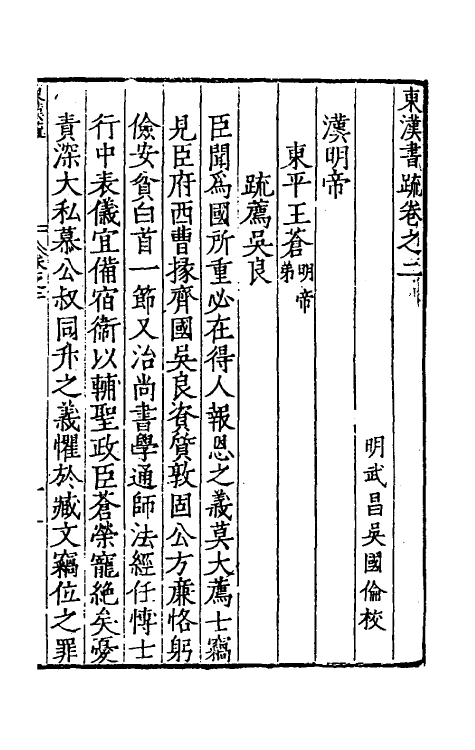 東漢書疏卷之二
明武昌吳國倫校
漢明帝
東平王蒼明帝弟
疏薦吳良
臣聞爲國所重必在得人報恩之義莫大薦士竊
見臣府西曹掾齊國吳良資質敦固公方廉恪躬
儉安貧白首一節又治尚書學通師法經任愽士
行中表儀宜備宿衞以輔聖政臣蒼榮寵絶矣憂
責深大私慕公叔同升之義懼於臧文竊位之罪